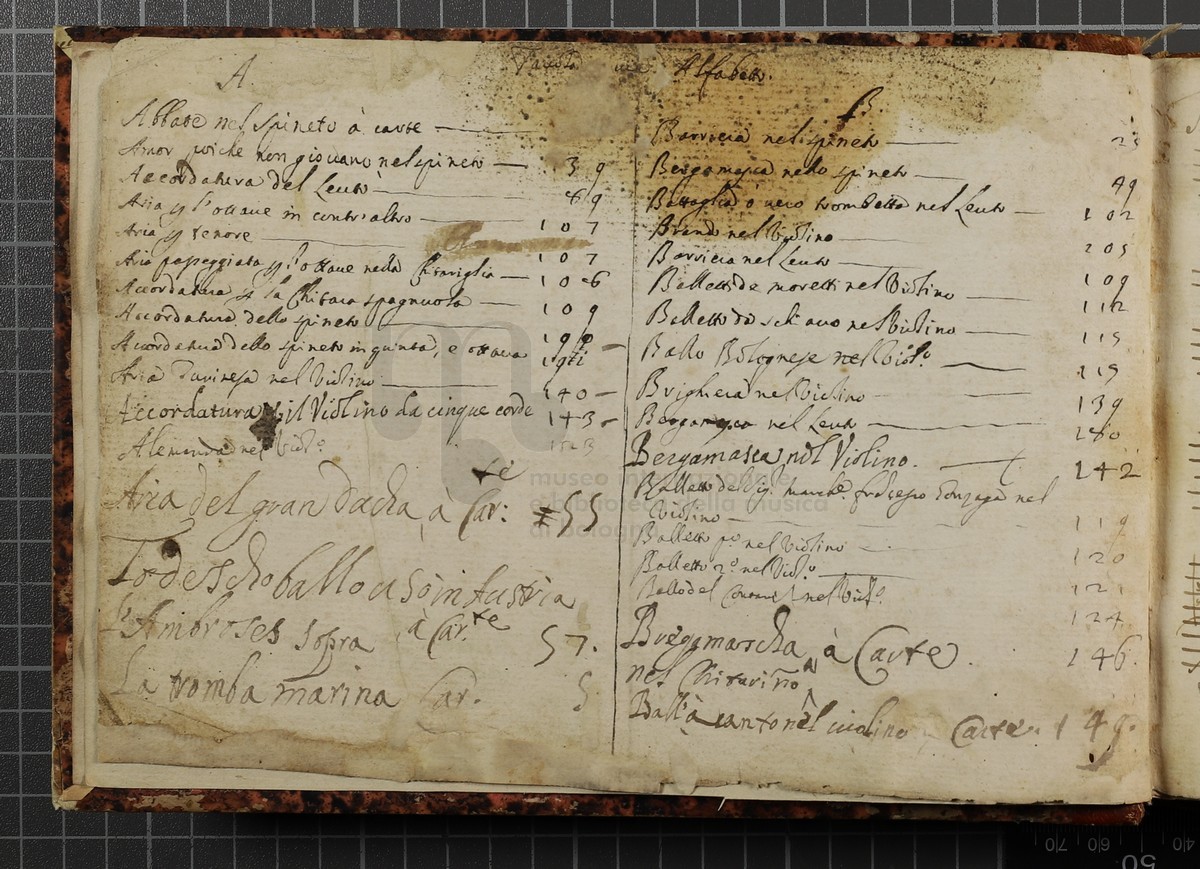 Tavola Alfabetto.
A
Abbate nel spineto à carte
Amor poiche non giovano nel spineto — 39
Accordatura del Leuto — 89
Aria p l'ottave in contr'alto — 107
Aria p tenore — 107
Aria passeggiata p l'ottave nella Chitariglia — 106
Accordatura p la Chitara spagnuola — 109
Accordatura dello spineto
Accordatura dello spineto in quinta, e ottava
Aria nel Violino — 140
Accordatura il Violino da cinque corde 143
Alemanda nel Viol.o
Aria del gran Ducha, à Car:te 55
Todescho ballo usò in Austria
à Car.te 57.
L'Ambroses sopra
La tromba marina Car. 5
B
Barriera nel spineto — 25
Bergamasca nello spineto — 49
Battaglia ò vero trombetta nel Leuto — 102
Brando nel Violino — 105
Barriera nel Leuto — 109
Balletto de moretti nel Violino — 112
Balletto da schiavo nel Violino — 115
Ballo Bolognese nel Viol.o — 119
Brighiera nel Violino — 139
Bergamasca nel Leuto — 140
Bergamasca nel Violino. — 142
Balletto del Sig. march. Gonzaga nel
Violino — 119
Balletto p.o nel Violino — 120
Balletto 2.o nel Viol.o — 121
Ballo del nel Viol.o 124
Bergamascha à Carte 146.
nel Chitarino
Ball'a canto nel violino Carte. 149.
museo internazionale
e biblioteca della musica
di bologna
70 60 50 40